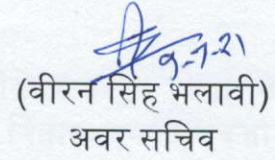 9-7-21
(वीरन सिंह भलावी)
अवर सचिव